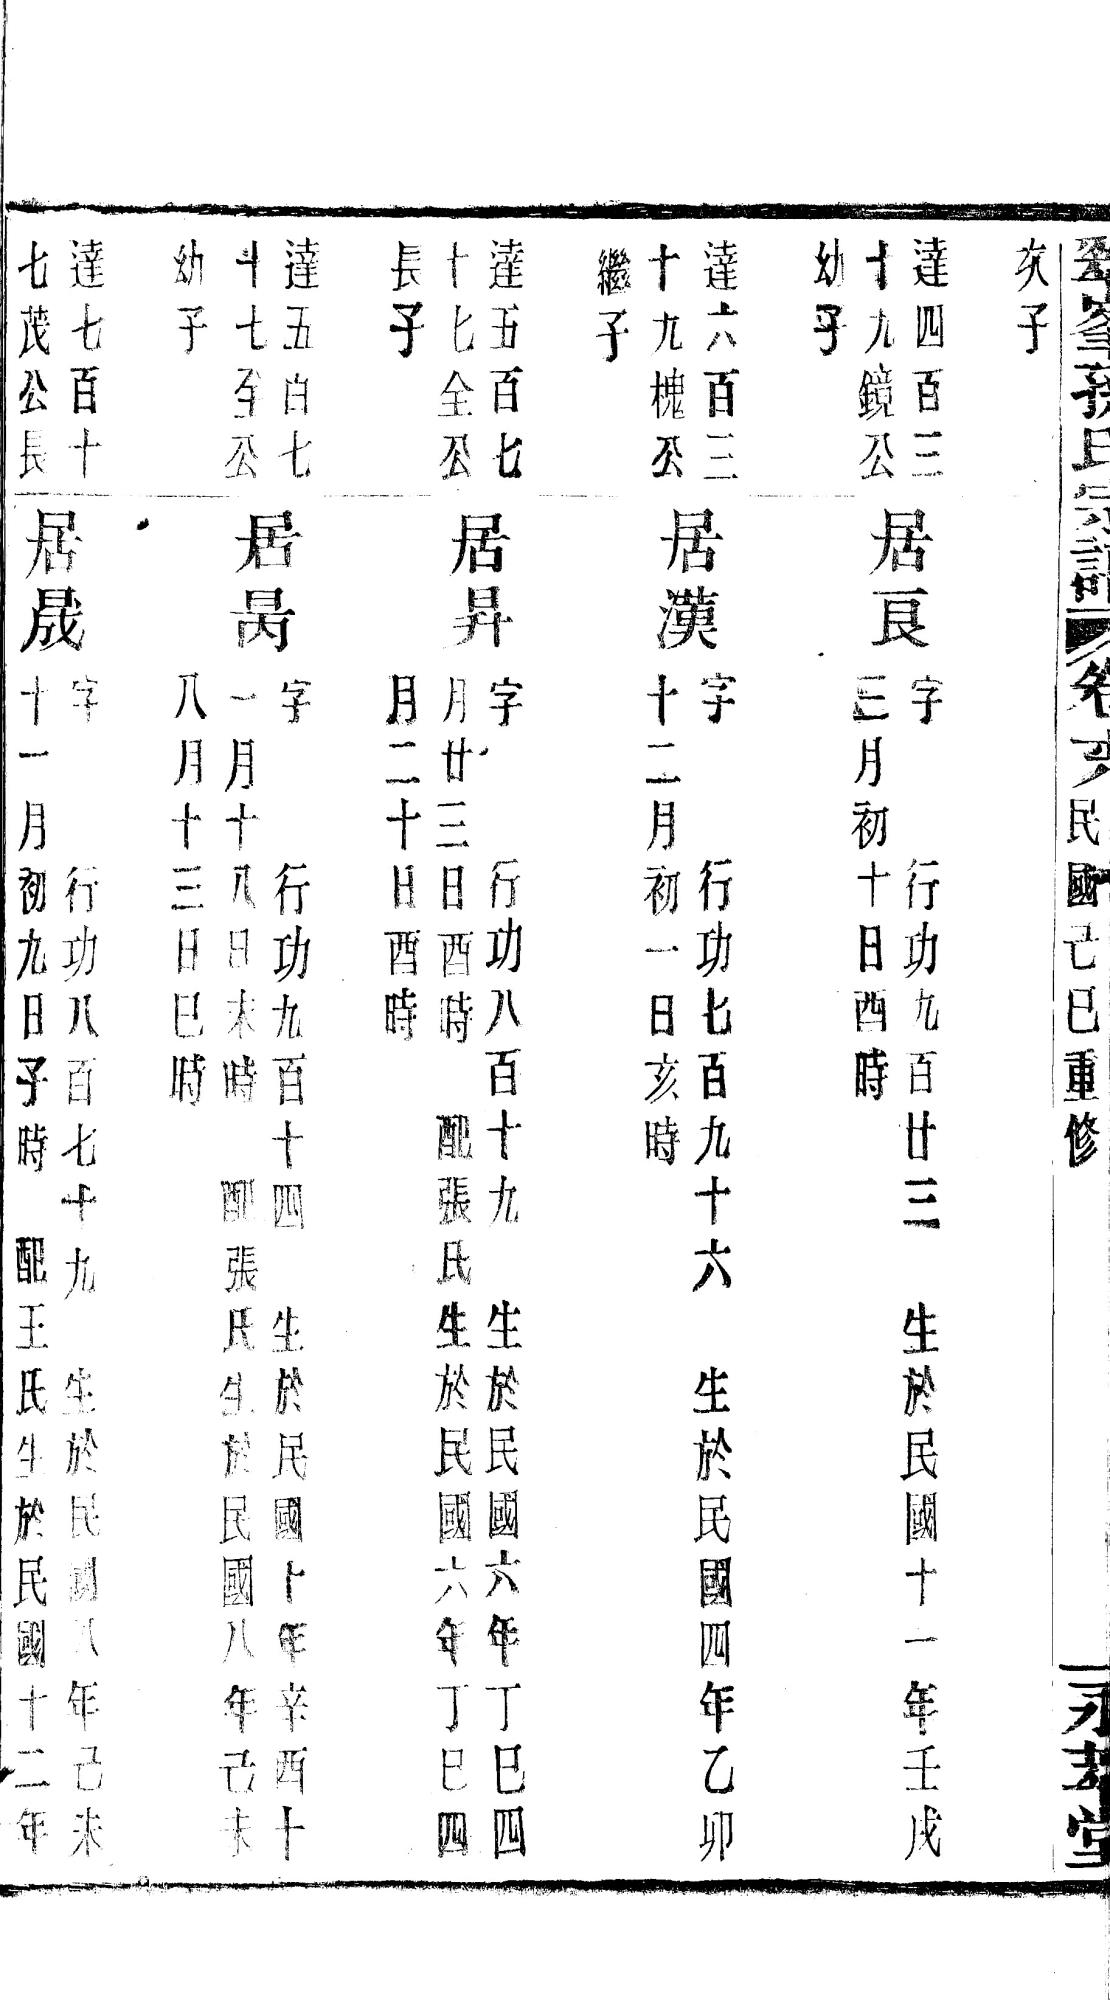 氏宗譜 卷 民國己巳重修 永堂
次子
達四百三
十九鏡公
幼子
居良
字 行功九百廿三 生於民國十一年壬戌
三月初十日酉時
達六百三
十九槐公
繼子
居漢
字 行功七百九十六 生於民國四年乙卯
十二月初一日亥時
達五百七
十七全公
長子
居昇
字 行功八百十九 生於民國六年丁巳四
月廿三日酉時 配張氏生於民國六年丁巳四
月二十日酉時
達五百七
十七全公
幼子
居
字 行功九百十四 生於民國十年辛酉十
一月十八日未時 配張氏生於民國八年己未
八月十三日巳時
達七百十
七茂公長
居晟
字 行功八百七十九 生於民國八年己未
十一月初九日子時 配王氏生於民國十二年